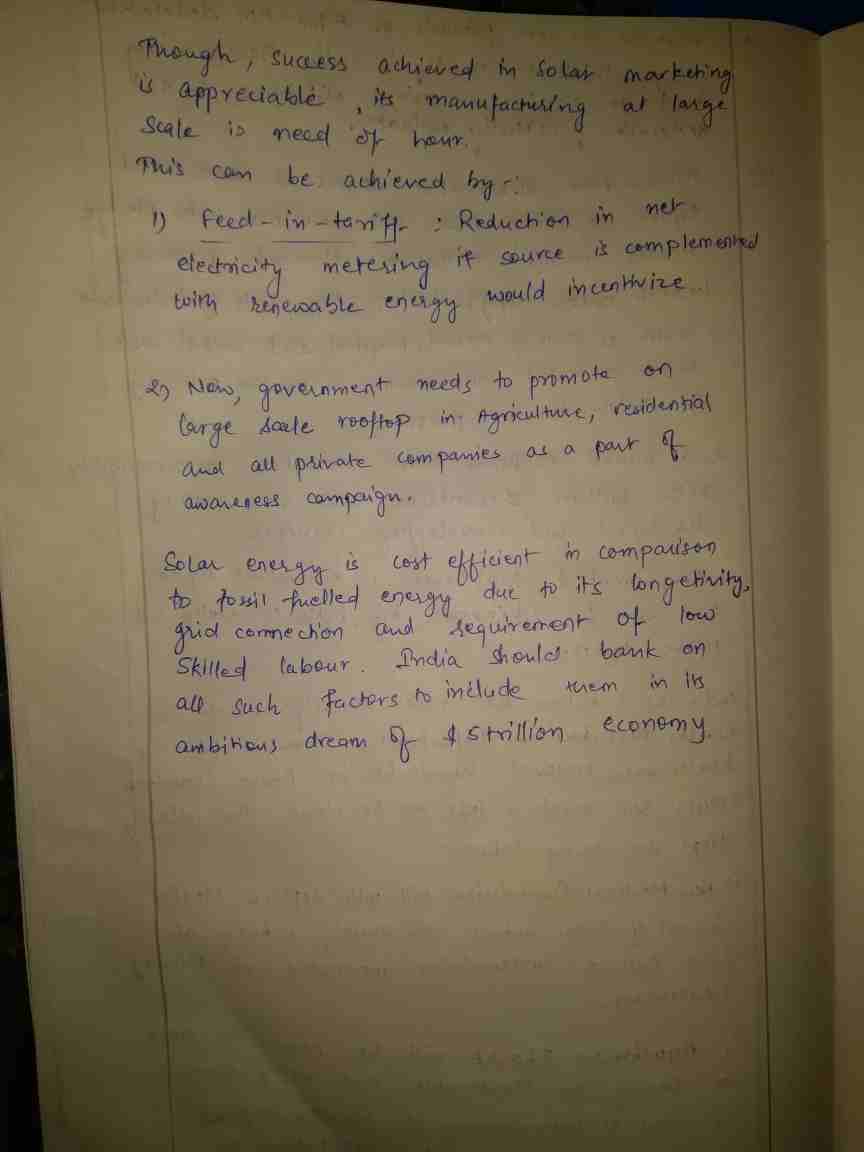 Though, success achieved in solar marketing
is appreciable, its manufacturing at large
scale is need of hour.
This can be achieved by -:
1) Feed-in-tariff : Reduction in net
electricity metering if source is complemented
with renewable energy would incenthvize.
2) Now, government needs to promote on
large scale rooftop in Agriculture, residential
and all private companies as a part of
awareness campaign.
Solar energy is cost efficient in comparison
to fossil fuelled energy due to its longetivity,
grid connection and requirement of low
skilled labour. India should bank on
all such factors to include them in its
ambitious dream of $ 5 trillion economy.